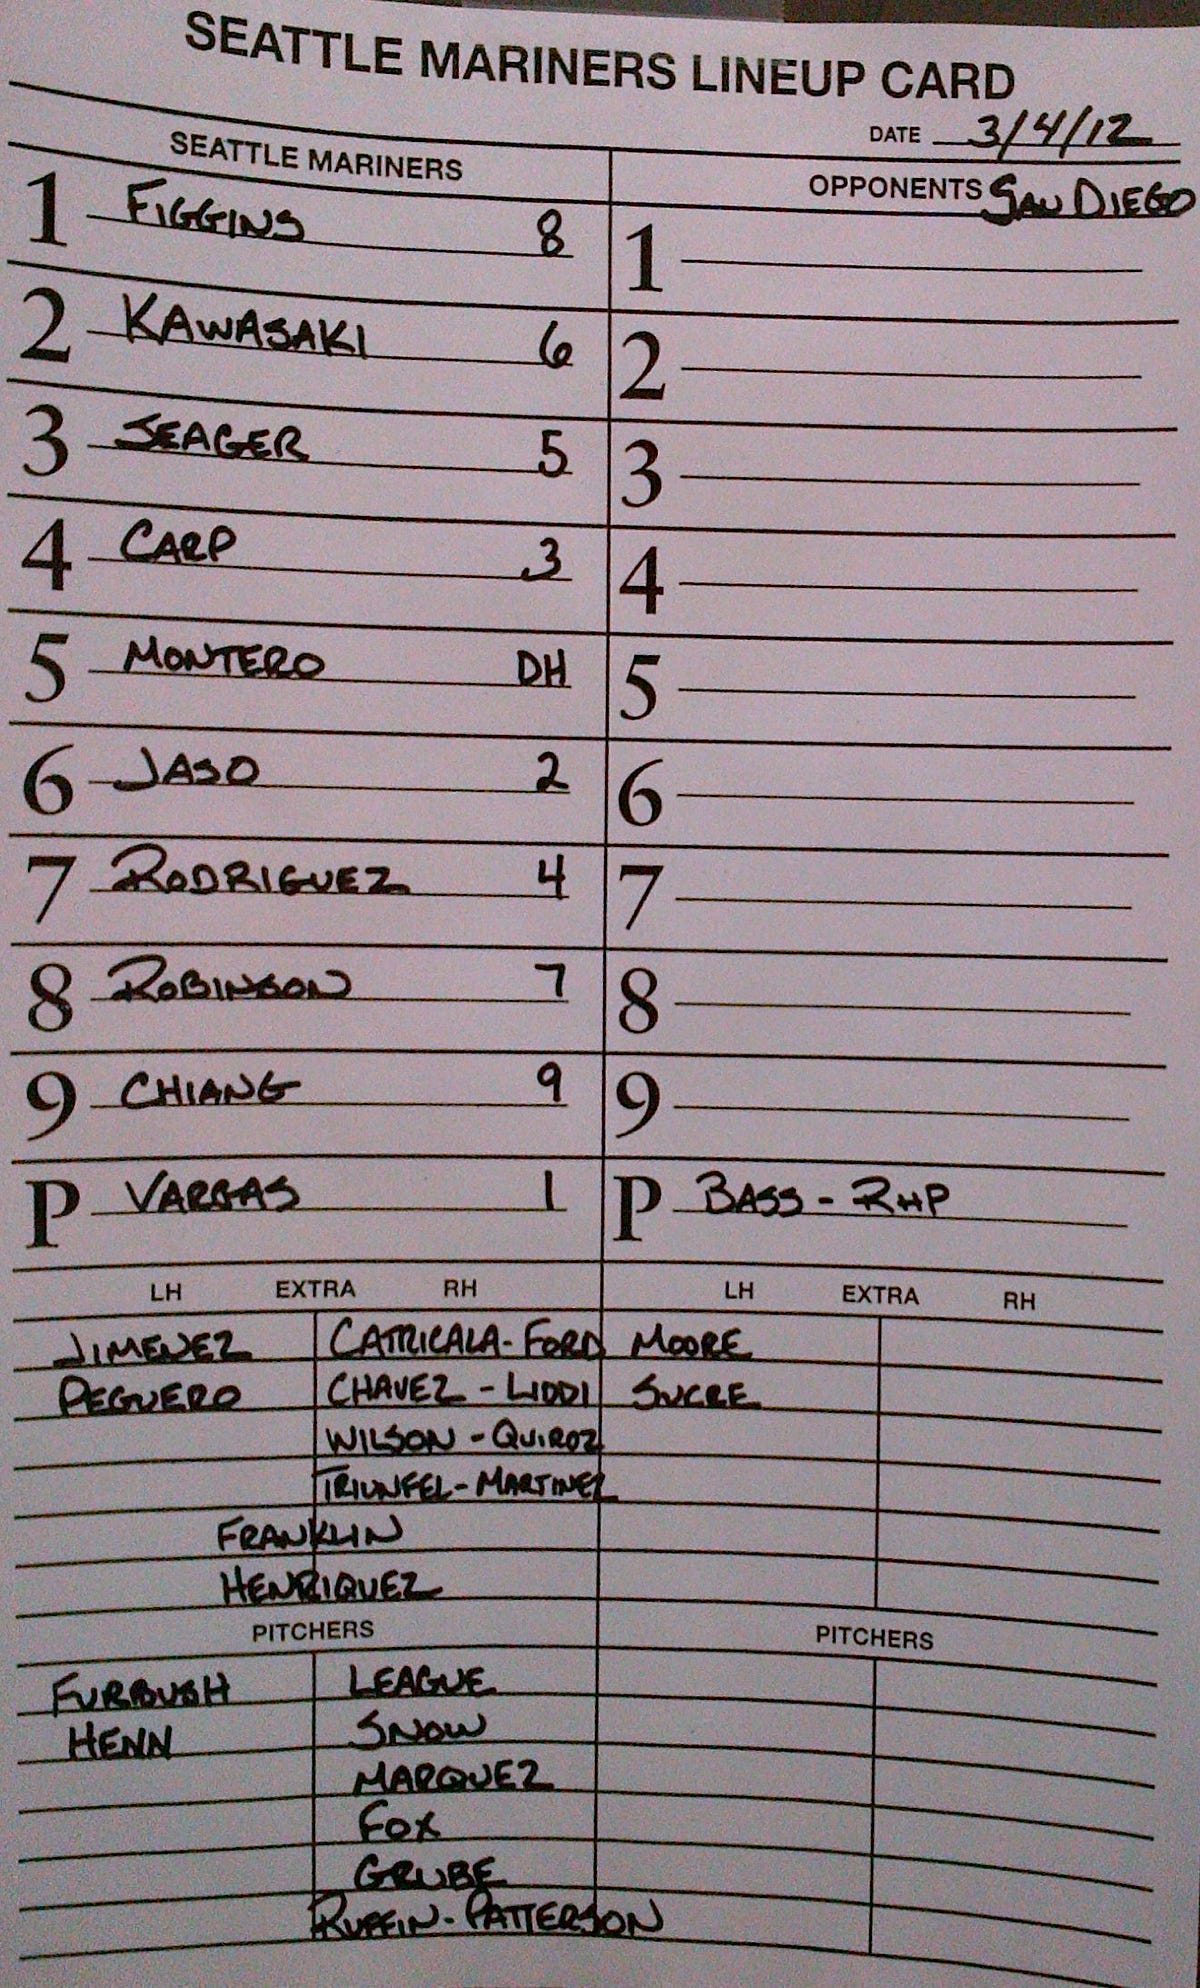 SEATTLE MARINERS LINEUP CARD
DATE 3/4/12
SEATTLE MARINERS
OPPONENTS SAN DIEGO
1 FIGGINS 8
1
2 KAWASAKI 6
2
3 SEAGER 5
3
4 CARP 3
4
5 MONTERO DH
5
6 JASO 2
6
7 RODRIGUEZ 4
7
8 ROBINSON 7
8
9 CHIANG 9
9
P VARGAS 1
P BASS - RHP
LH EXTRA RH
LH EXTRA RH
JIMENEZ CATRICALA - FORD MOORE
PEGUERO CHAVEZ - LIDDI SUCRE
WILSON - QUIROZ
TRIUNFEL - MARTINEZ
FRANKLIN
HENRIQUEZ
PITCHERS
PITCHERS
FURBUSH LEAGUE
HENN SNOW
MARQUEZ
FOX
GRUBE
RUFFIN - PATTERSON